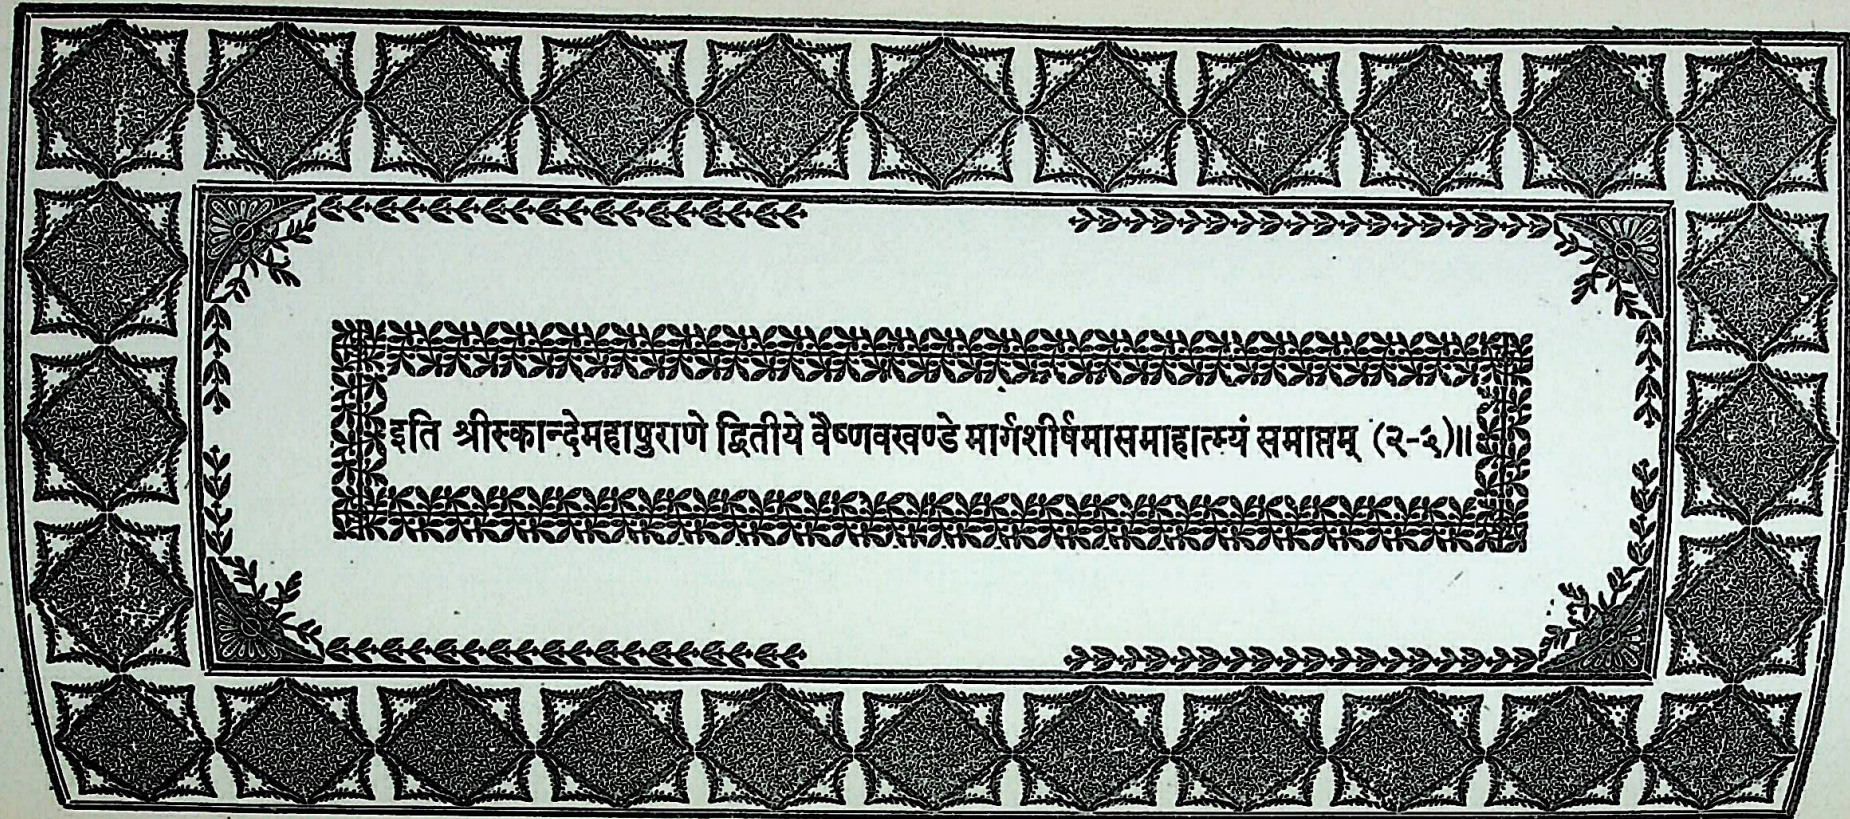 इति श्रीस्कान्देमहापुराणे द्वितीये वैष्णवखण्डे मार्गशीर्षमासमाहात्म्यं समाप्तम् (२-५)॥